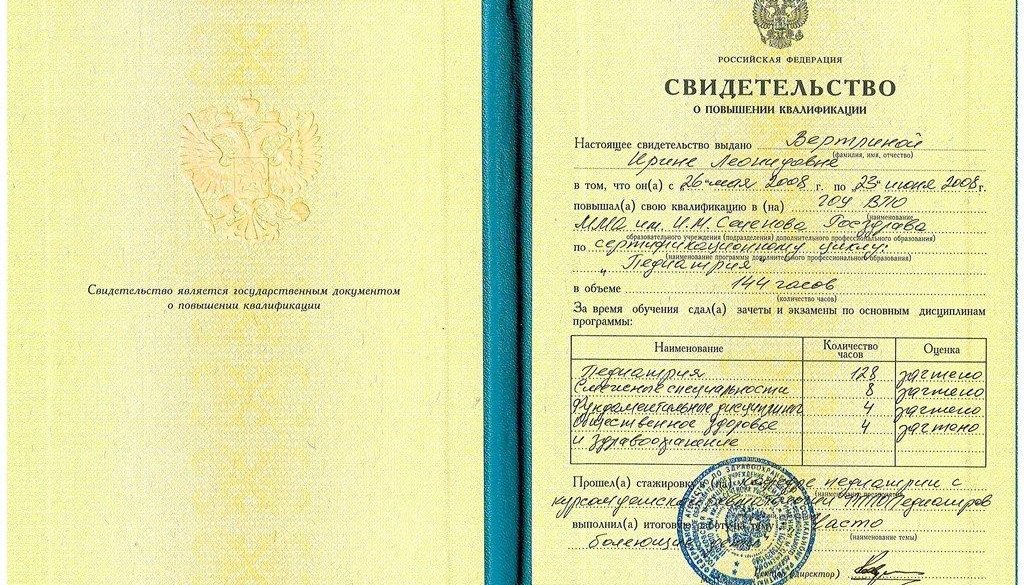 Свидетельство является государственным документом
о повышении квалификации
РОССИЙСКАЯ ФЕДЕРАЦИЯ
СВИДЕТЕЛЬСТВО
О ПОВЫШЕНИИ КВАЛИФИКАЦИИ
Настоящее свидетельство выдано Вертлиной
(фамилия, имя, отчество)
Ирине Леонидовне
в том, что он(а) с 26 мая 2008 г. по 23 июня 2008 г.
повышал(а) свою квалификацию в (на) ГОУ ВПО
(наименование
ММА им. И.М. Сеченова Росздрава
образовательного учреждения (подразделения) дополнительного профессионального образования)
по сертификационному циклу:
(наименование программы дополнительного профессионального образования)
„Педиатрия"
в объеме 144 часов
(количество часов)
За время обучения сдал(а) зачеты и экзамены по основным дисциплинам
программы:
Наименование Количество часов Оценка
Педиатрия 128 зачтено
Смежные специальности 8 зачтено
Фундаментальные дисциплины 4 зачтено
Общественное здоровье 4 зачтено
и здравоохранение
Прошел(а) стажировку в (на) кафедре педиатрии с
(наименование
курсом
выполнил(а) итоговую работу на тему Часто
(наименование темы)
болеющие дети
(директор)